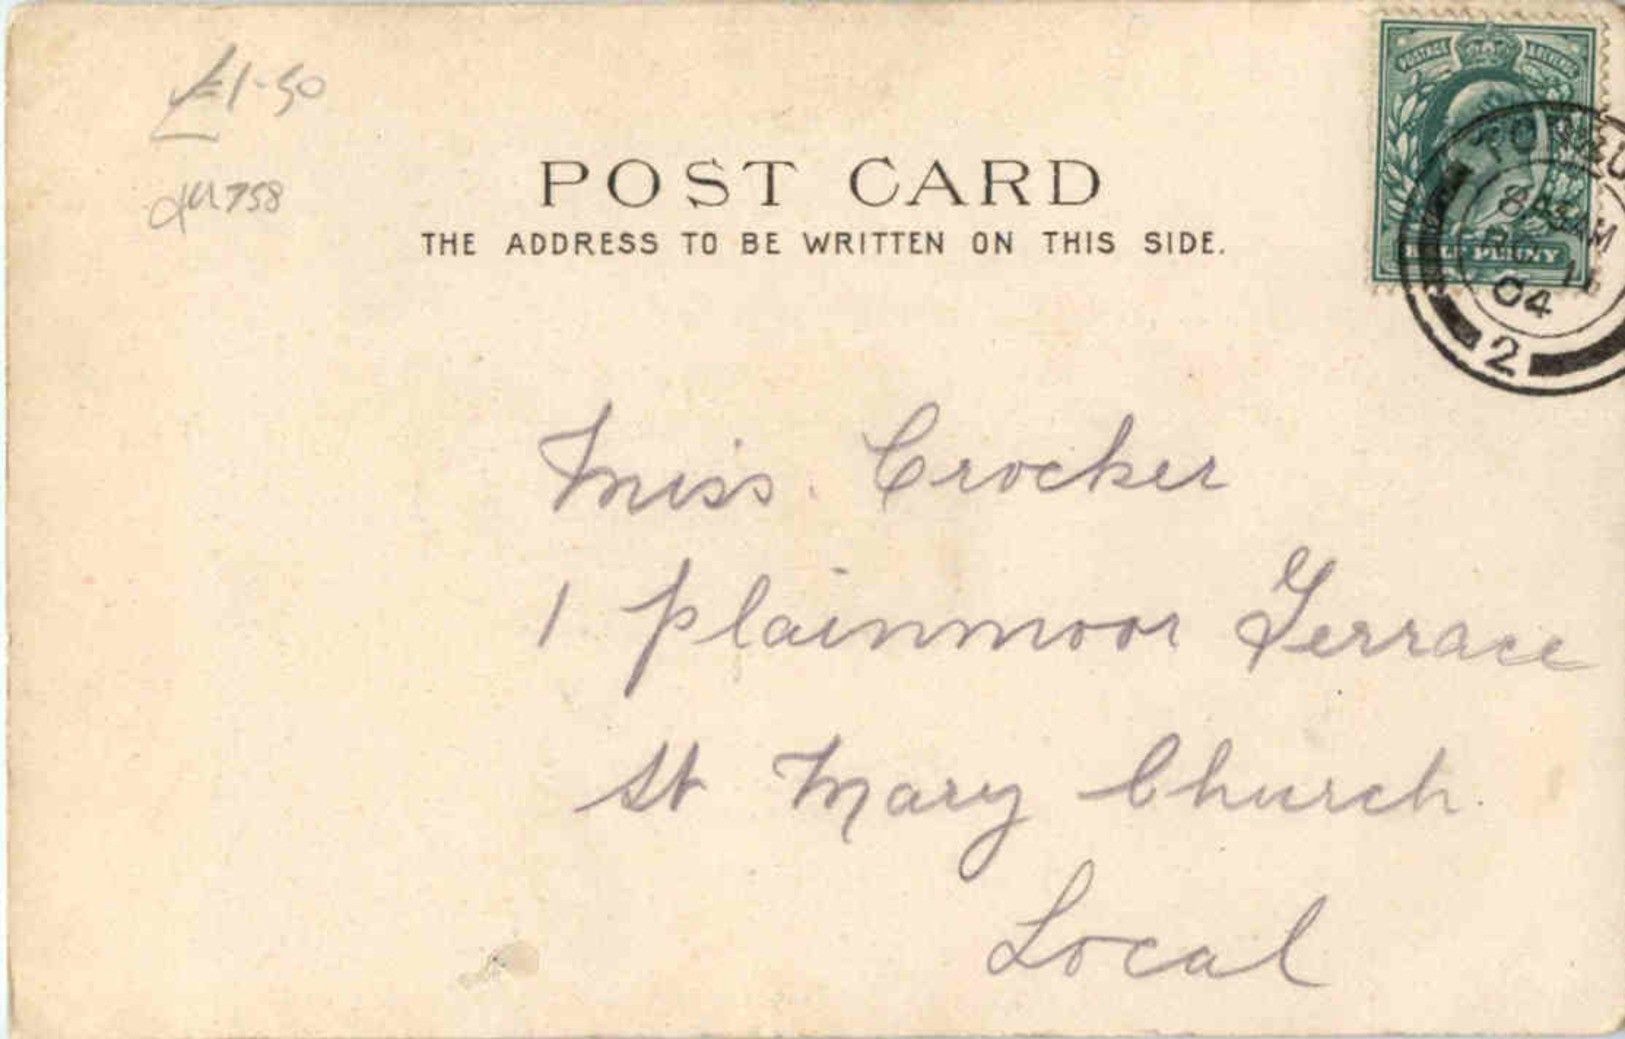 £1-50
758
POST CARD
THE ADDRESS TO BE WRITTEN ON THIS SIDE.
POSTAGE REVENUE
HALF PENNY
8
AM
04
2
Miss. Crocker
1 Plainmoor Terrace
St Mary Church.
Local